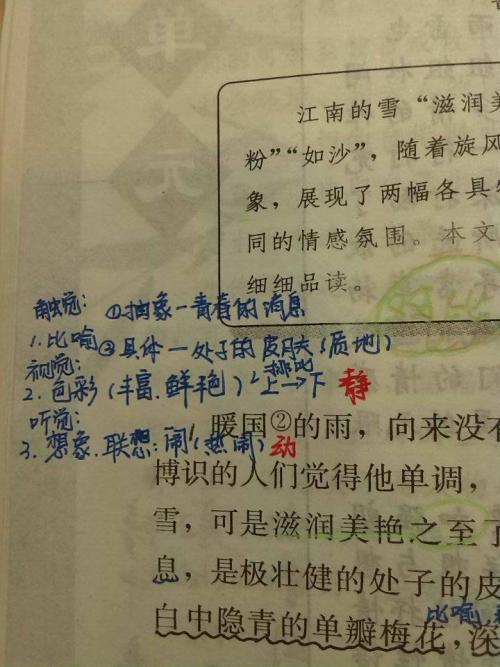 单
元
江南的雪“滋润美
粉”“如沙”，随着旋风
象，展现了两幅各具
同的情感氛围。本文
细细品读。
触觉：①抽象—青春的消息
1.比喻②具体—处子的皮肤（质地）
视觉：
2.色彩（丰富.鲜艳）排比 上→下 静
听觉：
3.想象.联想：闹（热闹）动
暖国②的雨，向来没
博识的人们觉得他单调，
雪，可是滋润美艳之至了
息，是极壮健的处子的皮
白中隐青的单瓣梅花，深
比喻